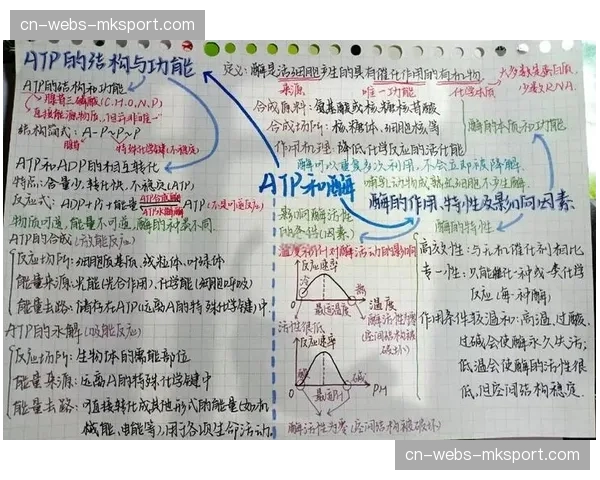 cn-webs-mksport.com
ATP的结构与功能
ATP的结构和功能
腺苷三磷酸(C.H.O.N.P)
直接能源物质,但并非唯一
结构简式: A-P~P~P
腺苷 特殊化学键(不稳定)
ATP和ADP的相互转化
特点:含量少,转化快,不稳定(ATP)
反应式: ADP+Pi+能量 ATP合成酶 ATP水解酶 ATP (不是可逆反应)
物质可逆,能量不可逆,酶的种类不同.
ATP的合成(吸能反应)
反应场所:细胞质基质,线粒体,叶绿体
能量来源:光能(光合作用),化学能(细胞呼吸)
能量去路:储存在ATP(远离A的特殊化学键)中.
ATP的水解(放能反应)
反应场所:生物体的需能部位
能量来源:远离A的特殊化学键中
能量去路:可直接转化成其他形式的能量(如机
械能,电能等),用于各项生命活动.
ATP和酶
定义:酶是活细胞产生的具有催化作用的有机物.
来源 唯一功能 化学本质
大多数是蛋白质,
少数RNA.
合成原料:氨基酸或核糖核苷酸
合成场所:核糖体、细胞核等
作用机理:降低化学反应的活化能
酶可以重复多次利用,不会立即被降解.
哺乳动物成熟红细胞不产生酶.
酶的本质和功能
酶的作用、特性及影响因素
影响酶活性
的条件(因素)
温度和pH对酶活动的影响
反应速率
冷 热
最适温度 温度
活性很低
酶活性
(空间结构被
破坏)
反应速率
酸 碱
最适pH PH
酶活性为零(空间结构被破坏)
酶的特性
高效性:与无机催化剂相比
专一性:只能催化一种或一类化学
反应(每一种酶)
作用条件较温和:高温,过酸,
过碱会使酶永久失活;
低温会使酶的活性很
低,但空间结构稳定.
cn-webs-mksport.com